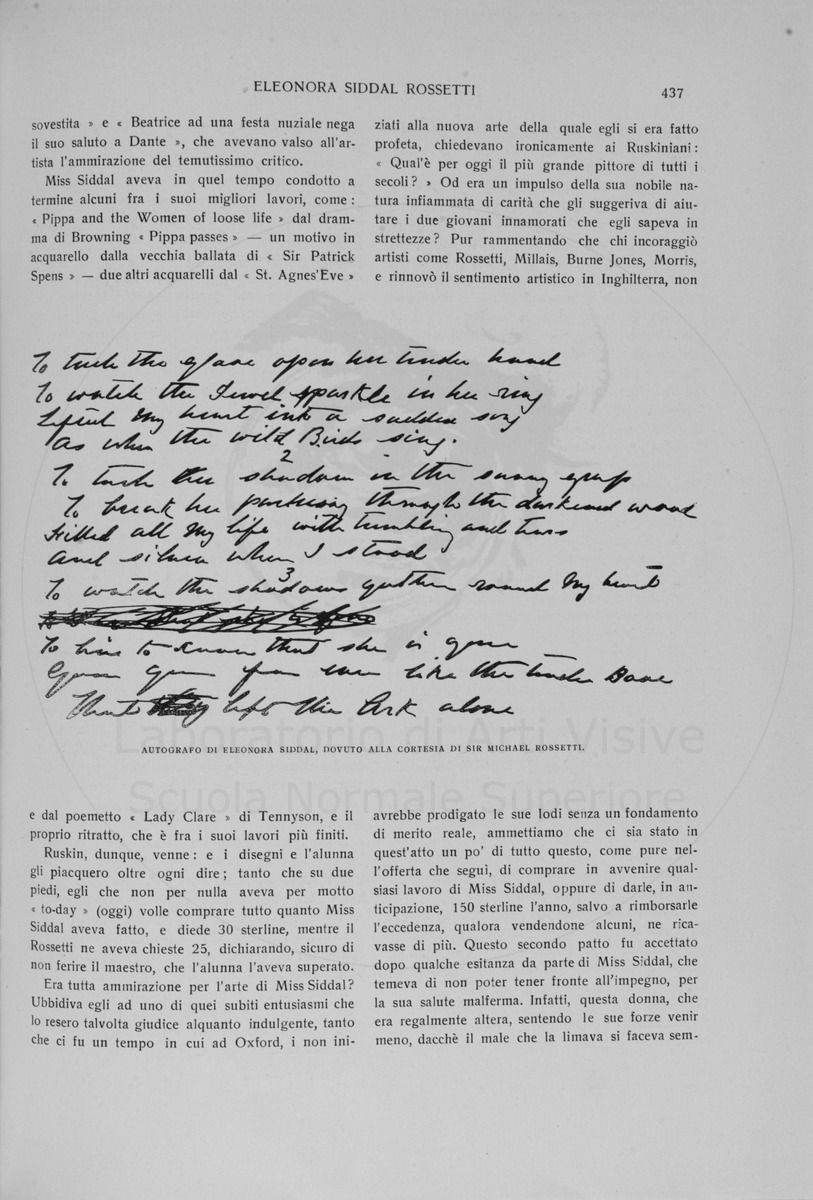 ELEONORA SIDDAL ROSSETTI
437
sovestita » e « Beatrice ad una festa nuziale nega
il suo saluto a Dante », che avevano valso all'ar-
tista l'ammirazione del temutissimo critico.
Miss Siddal aveva in quel tempo condotto a
termine alcuni fra i suoi migliori lavori, come :
« Pippa and the Women of loose life » dal dram-
ma di Browning « Pippa passes » — un motivo in
acquarello dalla vecchia ballata di « Sir Patrick
Spens » — due altri acquarelli dal « St. Agnes'Eve »
ziati alla nuova arte della quale egli si era fatto
profeta, chiedevano ironicamente ai Ruskiniani :
« Qual'è per oggi il più grande pittore di tutti i
secoli ? » Od era un impulso della sua nobile na-
tura infiammata di carità che gli suggeriva di aiu-
tare i due giovani innamorati che egli sapeva in
strettezze ? Pur rammentando che chi incoraggiò
artisti come Rossetti, Millais, Burne Jones, Morris,
e rinnovò il sentimento artistico in Inghilterra, non
To the glove upon her tender hand
To watch the Jewel sparkle in her ring
Lifted my heart into a sudden song
As when the wild Birds sing.
2
To her shadow in the sunny grass
To break her through the darkened wood
Filled all my life with trembling and tears
And silence when I stood
3
To watch the shadows gather round my heart
To live to know that she is gone
Gone gone for ever like the tender Dove
That left the Ark alone
AUTOGRAFO DI ELEONORA SIDDAL, DOVUTO ALLA CORTESIA DI SIR MICHAEL ROSSETTI.
Laboratorio di Arti Visive
Scuola Normale Superiore
e dal poemetto « Lady Clare » di Tennyson, e il
proprio ritratto, che è fra i suoi lavori più finiti.
Ruskin, dunque, venne : e i disegni e l'alunna
gli piacquero oltre ogni dire ; tanto che su due
piedi, egli che non per nulla aveva per motto
« to-day » (oggi) volle comprare tutto quanto Miss
Siddal aveva fatto, e diede 30 sterline, mentre il
Rossetti ne aveva chieste 25, dichiarando, sicuro di
non ferire il maestro, che l'alunna l'aveva superato.
Era tutta ammirazione per l'arte di Miss Siddal ?
Ubbidiva egli ad uno di quei subiti entusiasmi che
lo resero talvolta giudice alquanto indulgente, tanto
che ci fu un tempo in cui ad Oxford, i non ini-
avrebbe prodigato le sue lodi senza un fondamento
di merito reale, ammettiamo che ci sia stato in
quest'atto un po' di tutto questo, come pure nel-
l'offerta che seguì, di comprare in avvenire qual-
siasi lavoro di Miss Siddal, oppure di darle, in an-
ticipazione, 150 sterline l'anno, salvo a rimborsarle
l'eccedenza, qualora vendendone alcuni, ne rica-
vasse di più. Questo secondo patto fu accettato
dopo qualche esitanza da parte di Miss Siddal, che
temeva di non poter tener fronte all'impegno, per
la sua salute malferma. Infatti, questa donna, che
era regalmente altera, sentendo le sue forze venir
meno, dacchè il male che la limava si faceva sem-